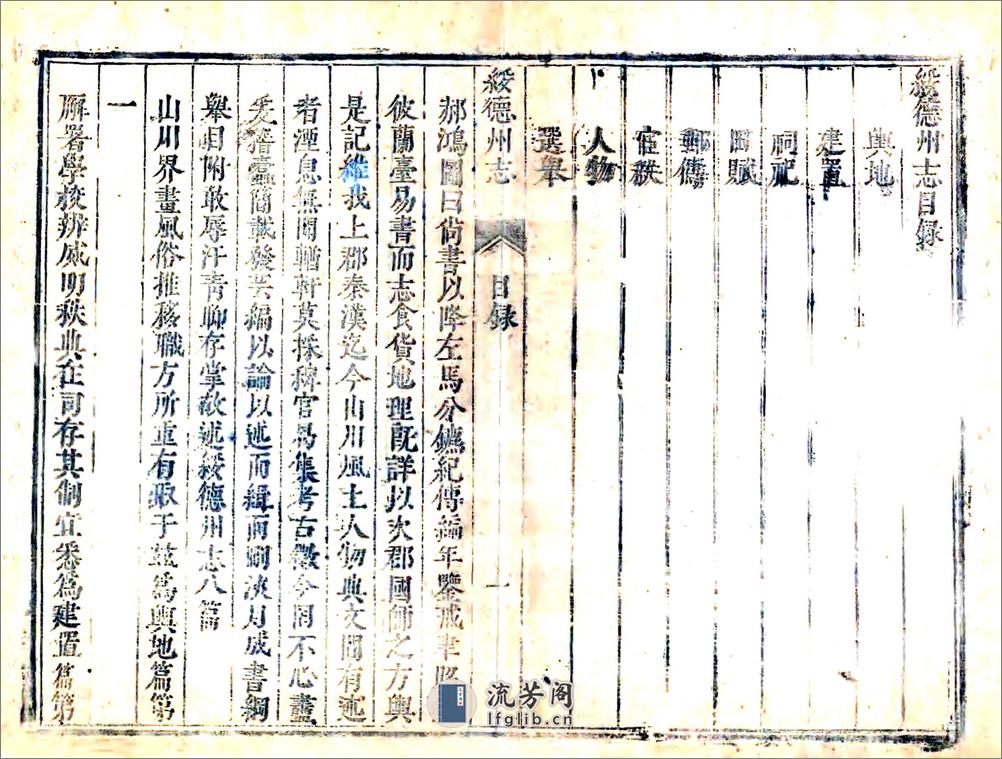 綏德州志目錄
輿地
建置
祠祀
田賦
郵傳
官秩
人物
選舉
綏德州志 目錄 一
郝鴻圖曰尚書以降左馬分鑣紀傳編年鑒戒聿昭
彼蘭臺易書而志食貨地理既詳以次郡國師之方輿
是記維我上郡秦漢迄今山川風土人物典文間有述
者湮息無聞輶軒莫採稗官易集考古徵今罔不心盡
爰搭蠹簡載發芸編以論以述而緝而刪浹月成書綱
舉目附敢辱汗青聊存掌故述綏德州志八篇
山川界畫風俗推移職方所重有取于茲為輿地篇第
一
廨署學校辨威明秩典在司存其制宜悉為建置篇第
流芳阁
lfglib.cn